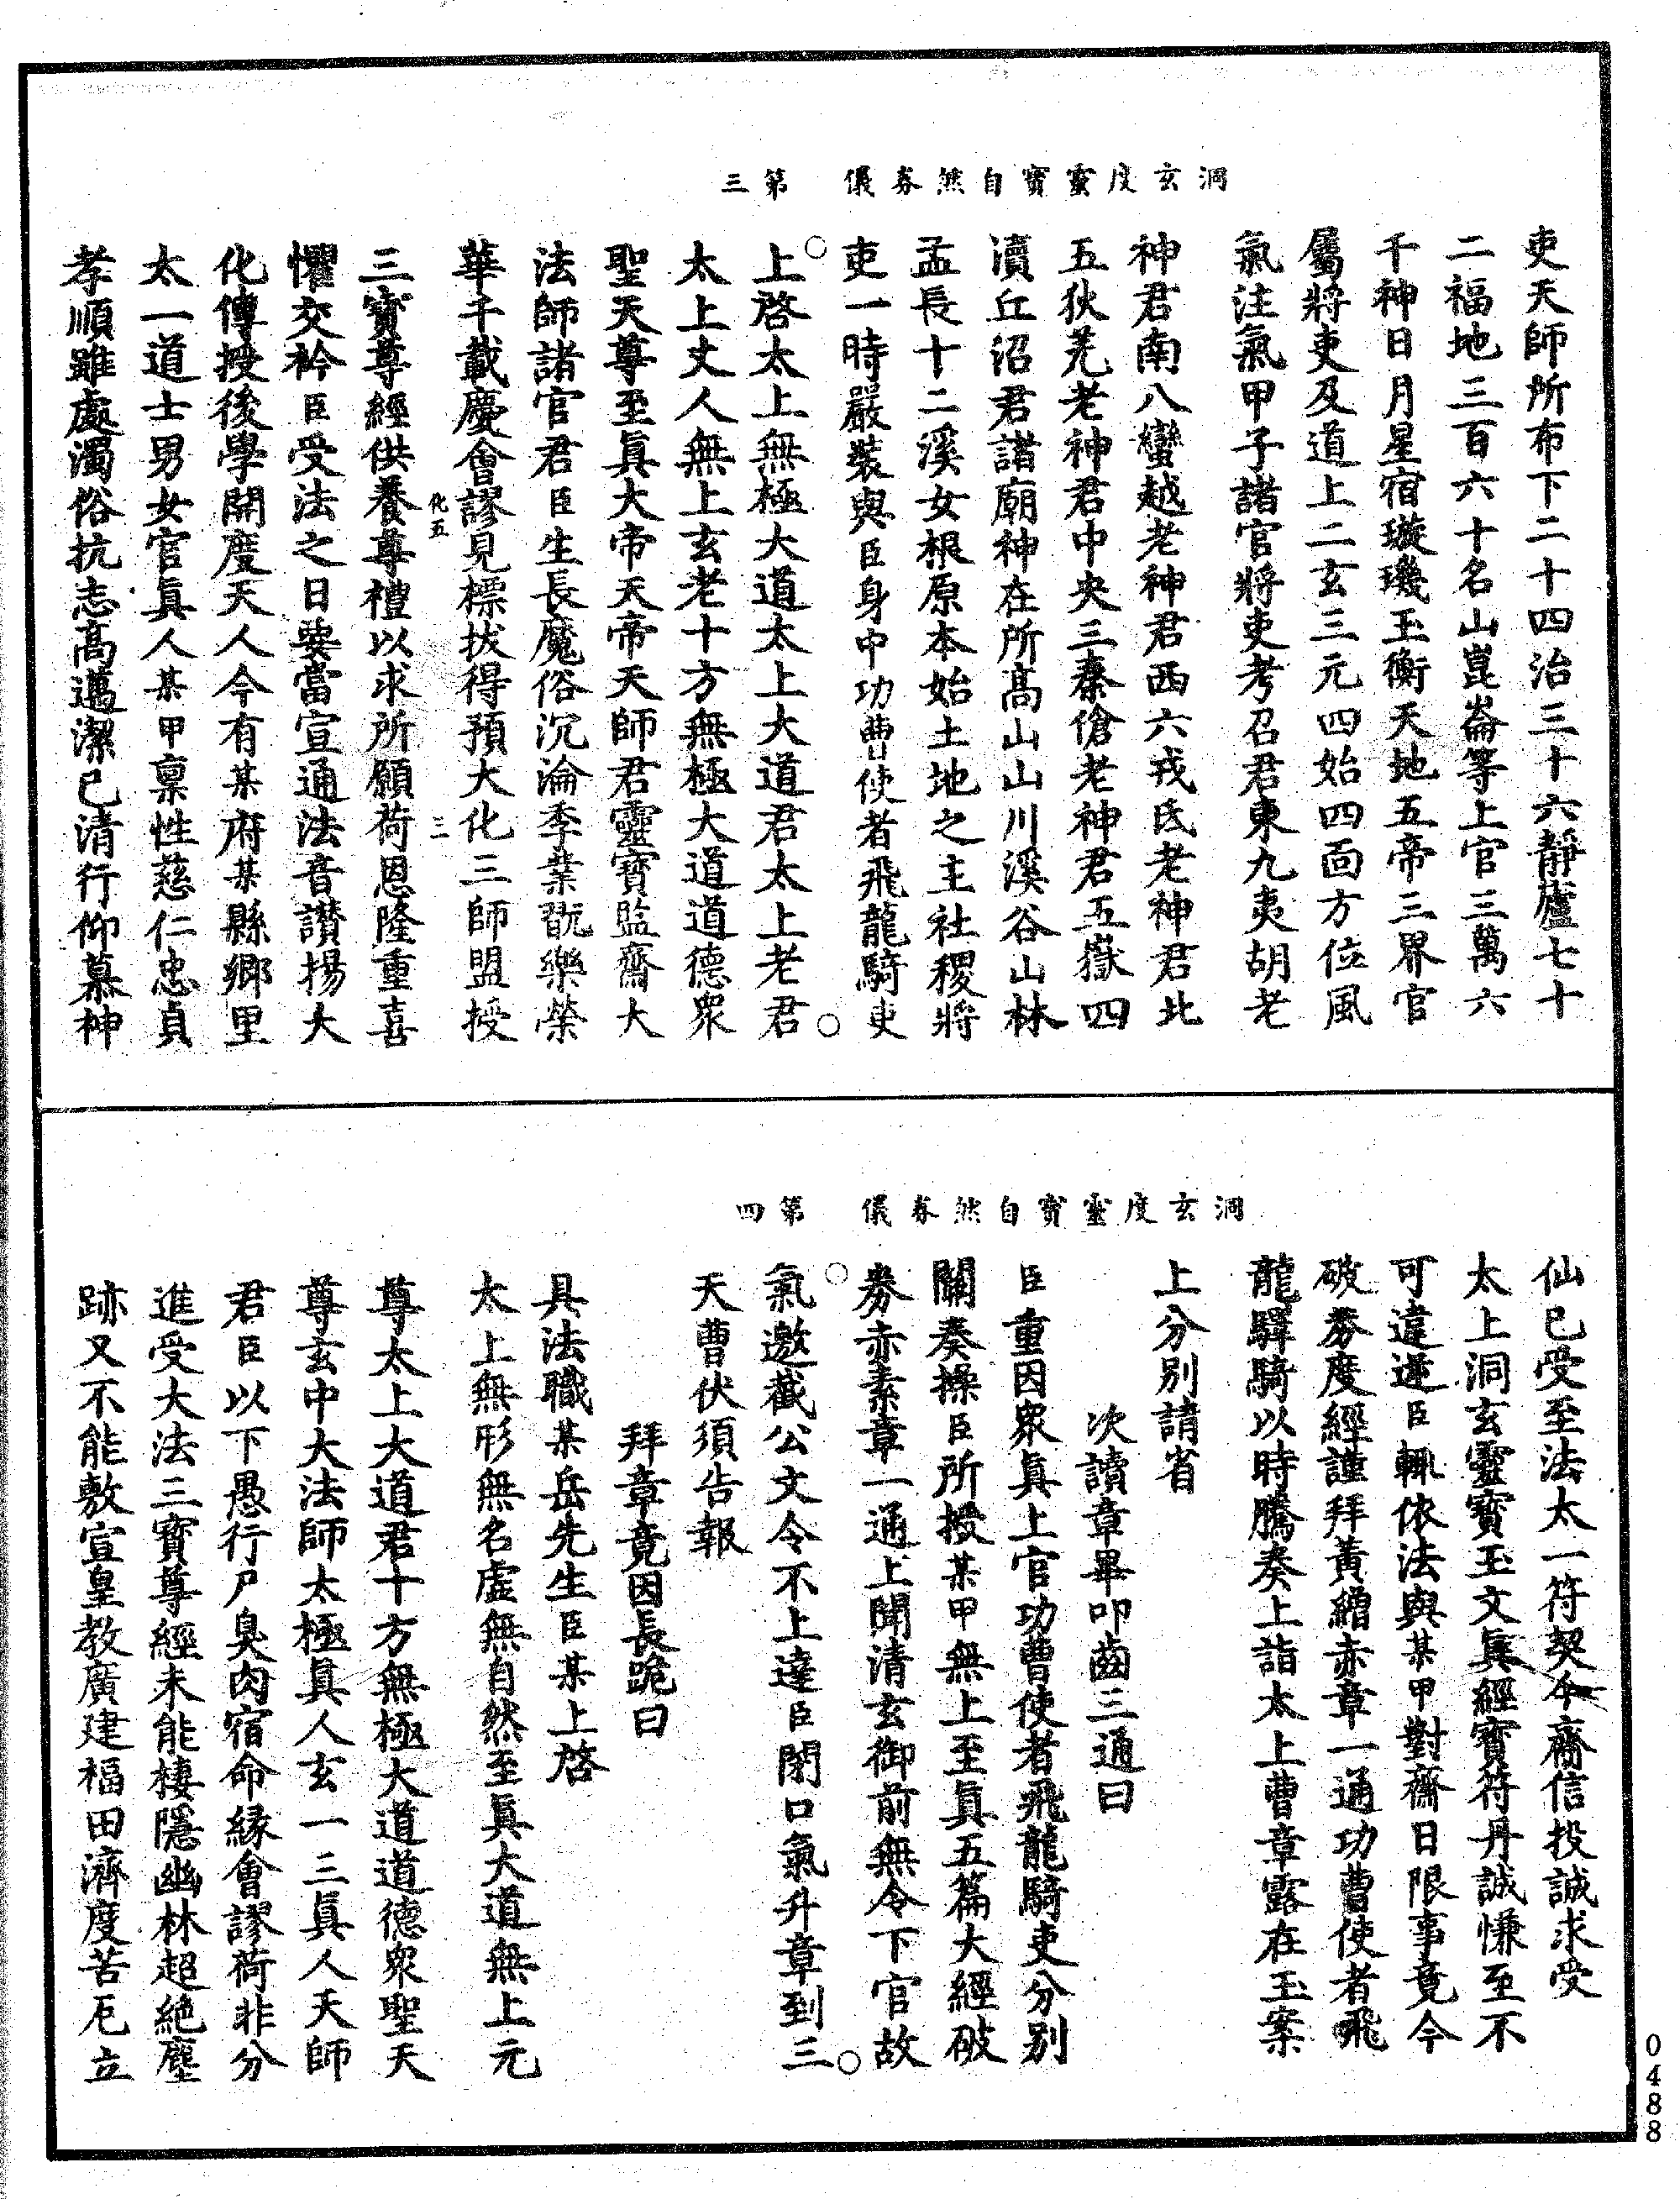 洞玄度靈寶自然券儀 第三
吏天師所布下二十四治三十六靜廬七十
二福地三百六十名山崑崙等上官三萬六
千神日月星宿璇璣玉衡天地五帝三界官
屬將吏及道上二玄三元四始四面方位風
氣注氣甲子諸官將吏考召君東九夷胡老
神君南八蠻越老神君西六戎氐老神君北
五狄羌老神君中央三秦傖老神君五嶽四
瀆丘沼君諸廟神在所高山山川溪谷山林
孟長十二溪女根原本始土地之主社稷將
吏一時嚴裝與臣身中功曹使者飛龍騎吏
上啓太上無極大道太上大道君太上老君
太上丈人無上玄老十方無極大道道德衆
聖天尊至眞大帝天帝天師君靈寶監齋大
法師諸官君臣生長魔俗沉淪季業翫樂榮
華千載慶會謬見標拔得預大化三師盟授
化五 三
三寶尊經供養尊禮以求所願荷恩隆重喜
懼交衿臣受法之日要當宣通法音讚揚大
化傳授後學開度天人今有某府某縣鄉里
太一道士男女官眞人某甲稟性慈仁忠貞
孝順雖處濁俗抗志高邁潔己清行仰慕神
洞玄度靈寶自然券儀 第四
仙已受至法太一符契今齋信投誠求受
太上洞玄靈寶玉文眞經寶符丹誠慊至不
可違逆臣輒依法與某甲對齋日限事竟今
破券度經謹拜黃繒赤章一通功曹使者飛
龍驛騎以時騰奏上詣太上曹章露在玉案
上分別請省
次讀章畢叩齒三通曰
臣重因衆眞上官功曹使者飛龍騎吏分別
關奏操臣所授某甲無上至眞五篇大經破
券赤素章一通上聞清玄御前無令下官故
氣邀截公文令不上達臣閉口氣升章到三
天曹伏須告報
拜章竟因長跪曰
具法職某岳先生臣某上啓
太上無形無名虛無自然至眞大道無上元
尊太上大道君十方無極大道道德衆聖天
尊玄中大法師太極眞人玄一三眞人天師
君臣以下愚行尸臭肉宿命緣會謬荷非分
進受大法三寶尊經未能棲隱幽林超絕塵
跡又不能敷宣皇教廣建福田濟度苦厄立
0488